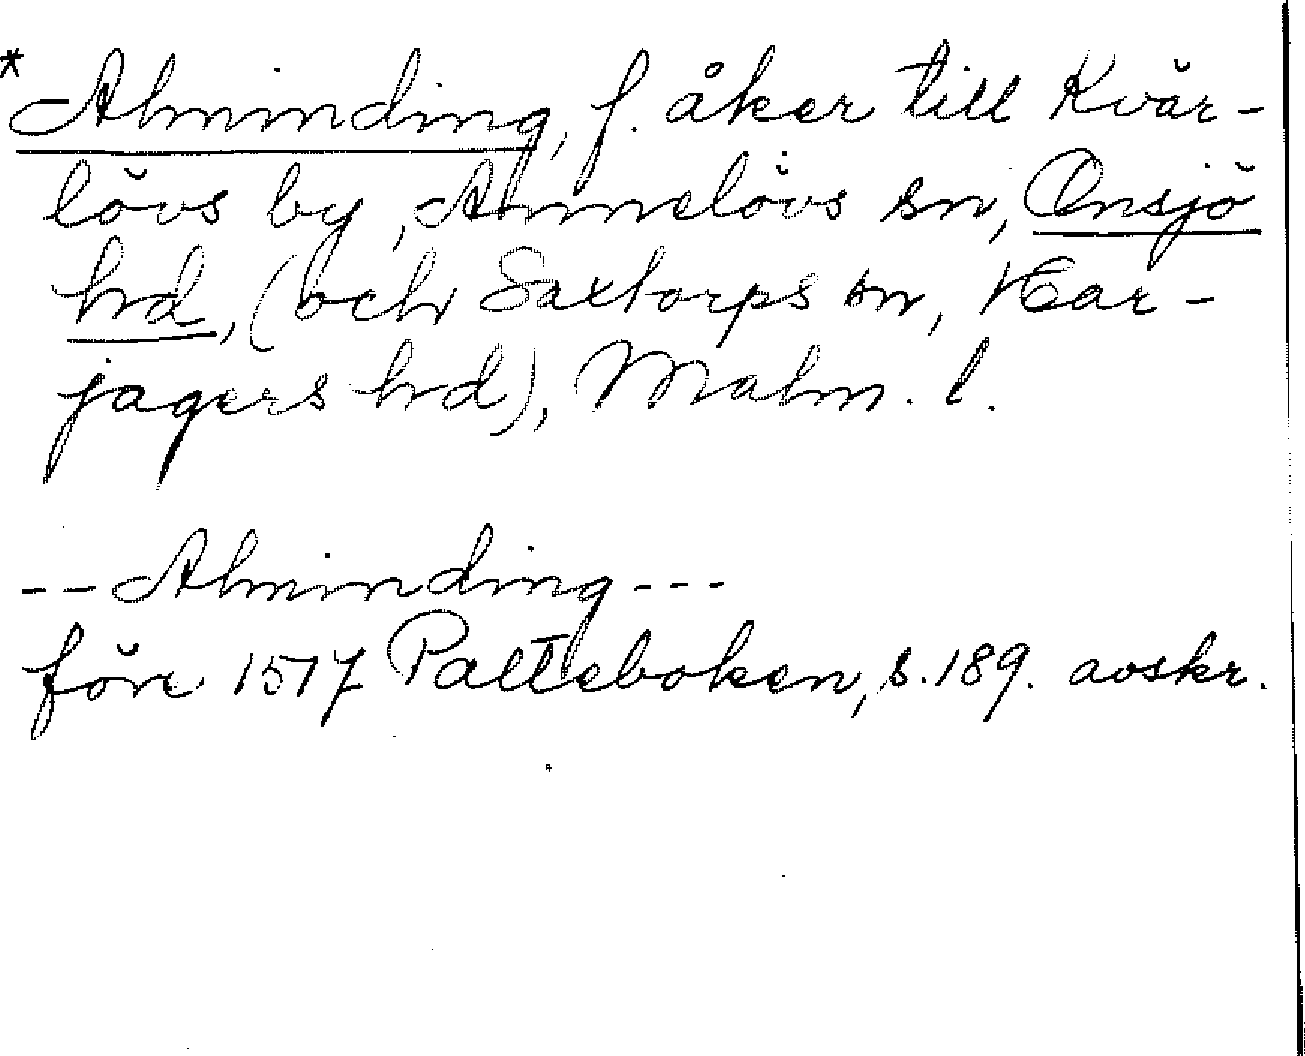 * Alminding, f. åker till Kvär-
lövs by, Annelövs sn, Onsjö
hd, (och Saxtorps sn, Har-
jagers hd), Malm. l.
-- Alminding ---
före 1517 Palteboken, s. 189. avskr.